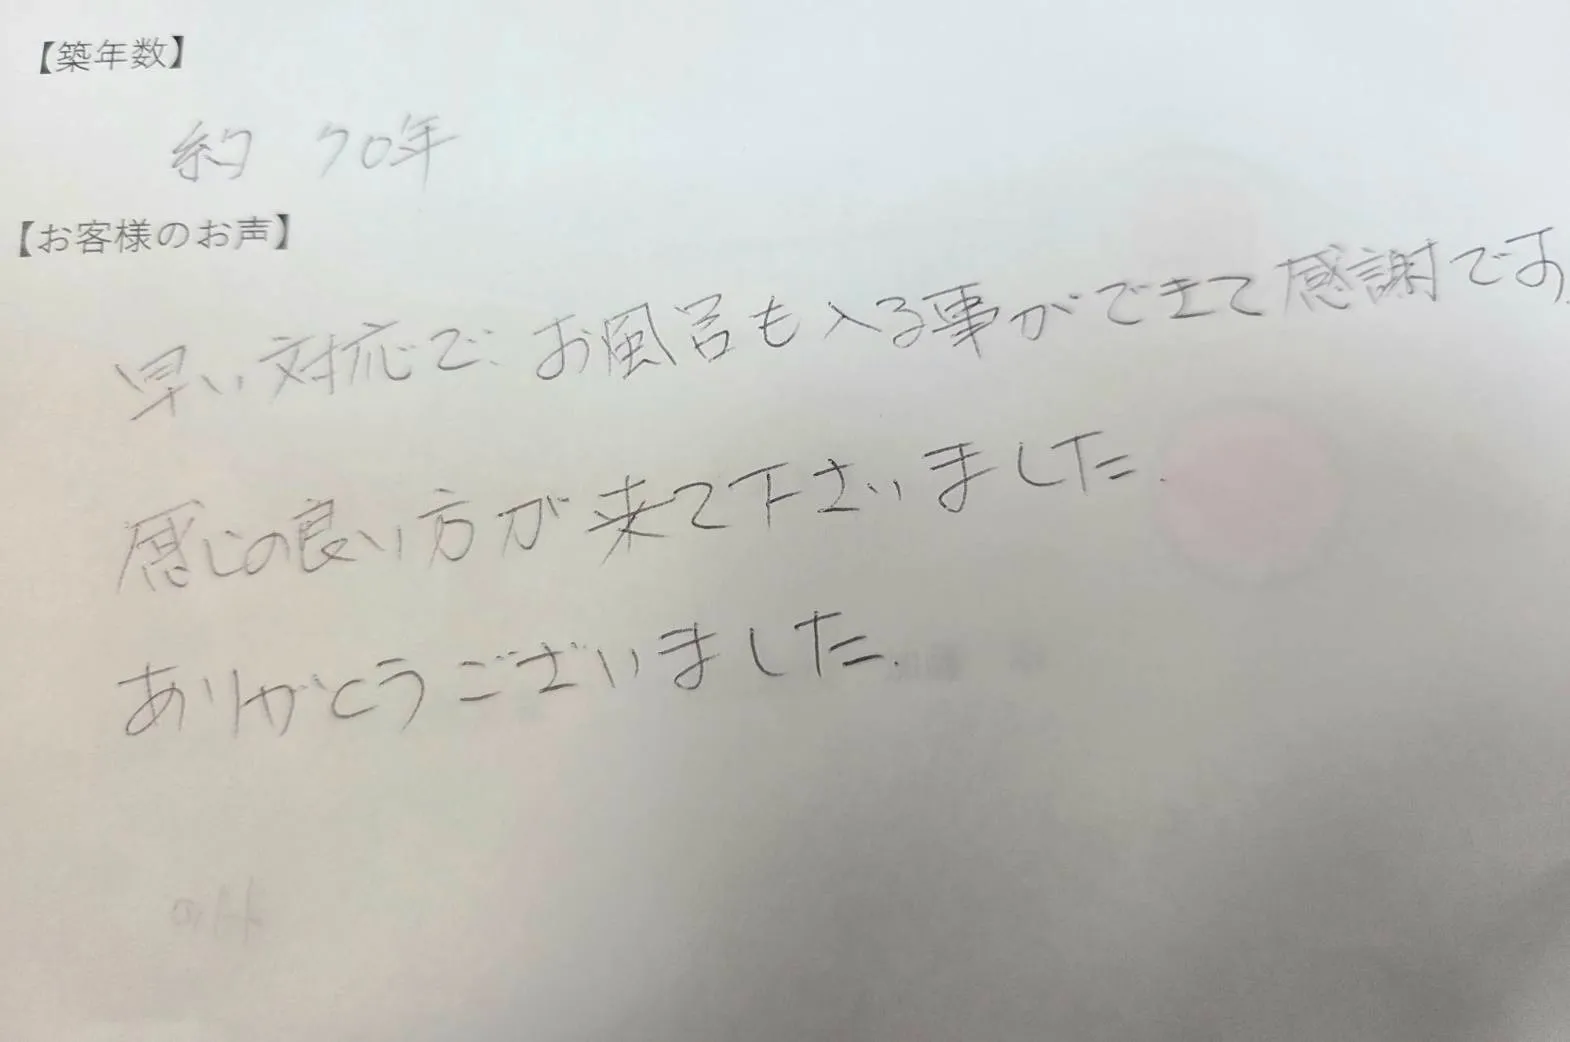 【築年数】
約 70年
【お客様のお声】
早い対応で、お風呂も入る事ができて感謝です。
感じの良い方が来て下さいました。
ありがとうございました。